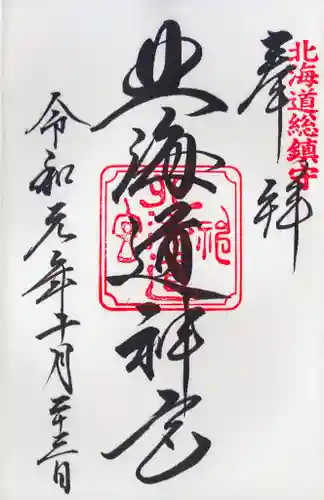 北海道総鎮守
奉拝
北海道神宮
令和元年十一月二十三日